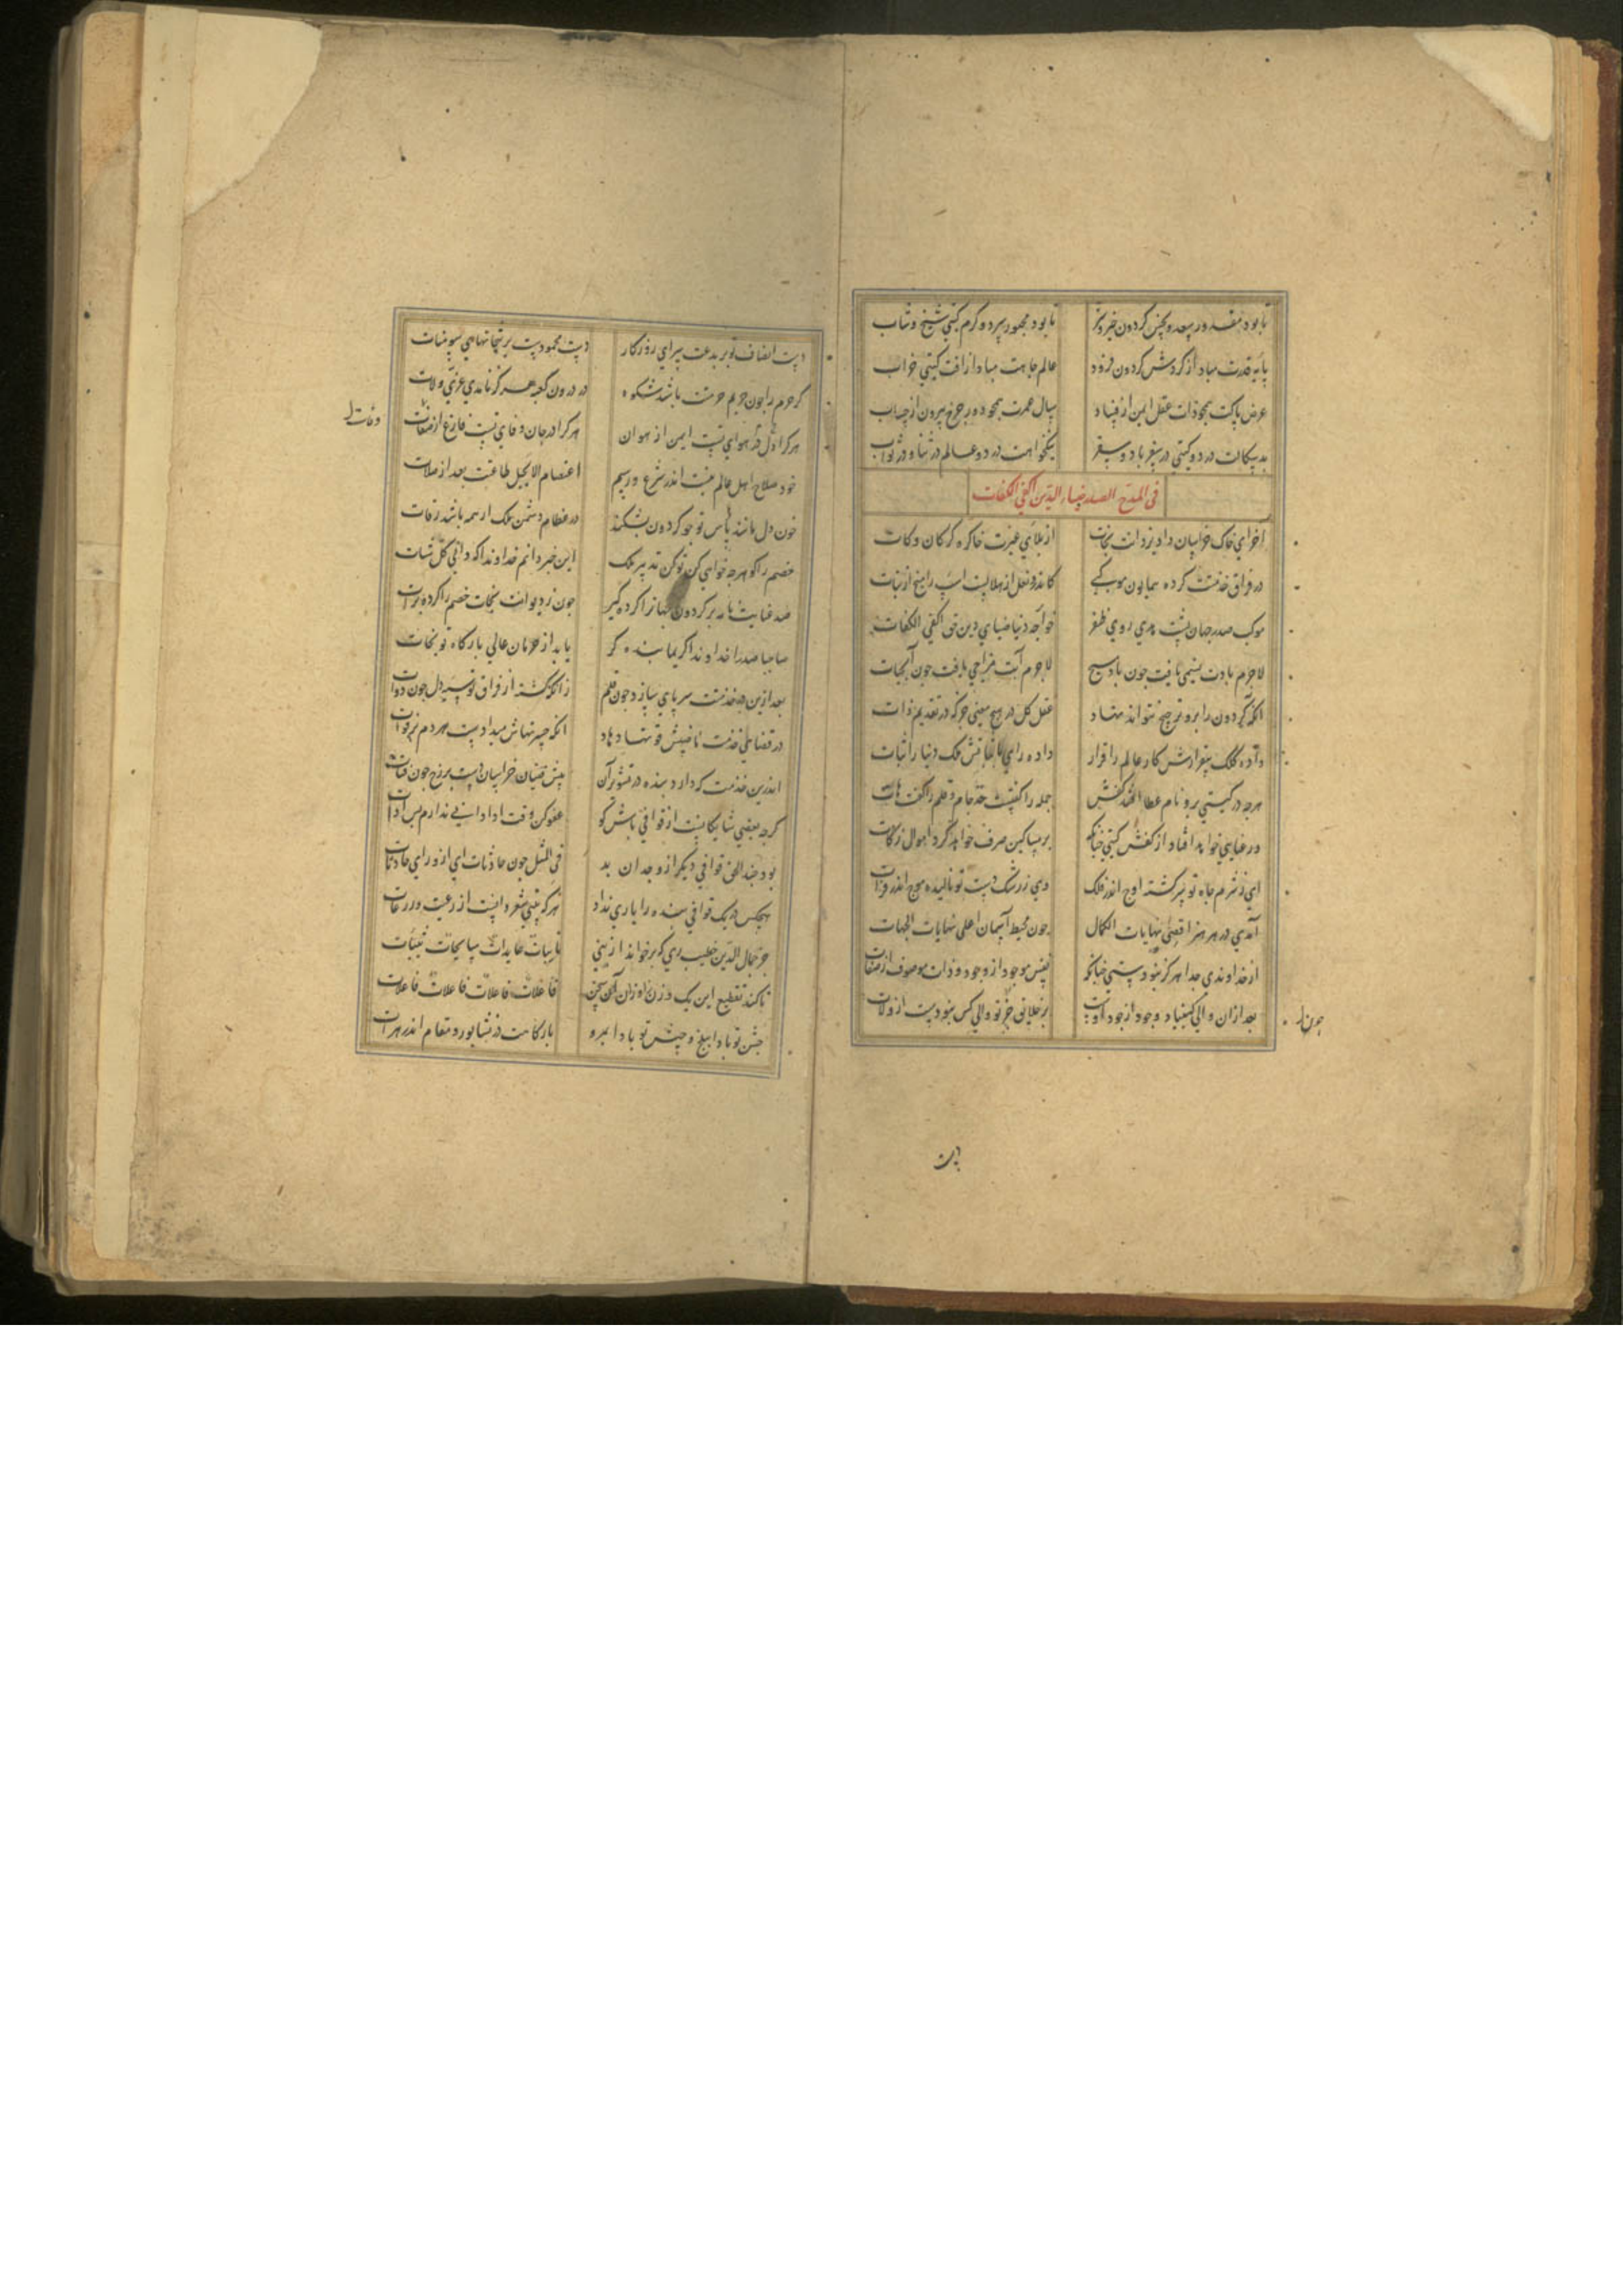 تا بود مقدور سعد و نحس گردون خیر و شر تا بود مجبور سرد و گرم گیتی شیخ و شاب
پایه قدرت مباد از گردش گردون فرود عالم جاهت مباد از آفت گیتی خراب
عرض پاکت همچو ذات عقل ایمن از فساد سال عمرت همچو دور چرخ بیرون از حساب
بدسکالت در دو گیتی در سفر باد و سقر نیکخواهت در دو عالم در ثنا و در ثواب
فی المدح الصدر ضیاء الدین اکفی الکفات
آخر ای خاک خراسان داد یزدانت نجات از بلای غیرت خاک ره گرگان و کات
در فراق خدمت گرد همایون موکبی کاندرو نعل از هلالست اسب را میخ از نبات
موکب صدر جهان پشت هدی روی ظفر خواجه دنیا ضیای دین حق اکفی الکفات
لاجرم بادت نسیمی یافت چون باد مسیح لاجرم آبت مزاجی یافت چون آب حیات
آنکه گردون را برو ترجیح نتواند نهاد عقل کل در هیچ معنی جز که در تقدیم ذات
داده کلک بیقرارش کار عالم را قرار داده رای با ثباتش ملک دنیا را ثبات
هرچه در گیتی برو نام عطا افتد کفش جمله را گفتست خذ جام و قلم را گفت هات
ور عنایتی خواهد افتاد از کفش گیتی چنانک بر مساکین صرف خواهد کرد اموال زکات
ای ز شرم جاه تو سرگشته اوج اندر فلک وی ز رشک دست تو نالیده موج اندر فرات
آمدی در هر هنر اقصی نهایات الکمال چون محیط آسمان اعلی نهایات الجهات
از خداوندی جدا هرگز نبودستی چنانک نفس موجود از وجود و ذات موصوف از صفات
بعد از آن والی کینهاد وجود از جود اوست بر خلایق جز تو والی کس نبودست از ولات
چون ار
دست انصاف تو بر بدعت سرای روزگار دست محمودست بر بتخانهای سومنات
گر حرم را چون حریم حرمتت باشد شکوه در درون کعبه هرگز نامدی عزی و لات
هر کرا در دل هوای تست ایمن از هوان هر کرا در جان وفای تست فارغ از صفات
وفات ل
خود صلاح اهل عالم نیست اندر شرع و رسم اعتصام الا بحبل طاعتت بعد از صلات
خون دل ماند بأس تو چو گردون بشکند در عظام دشمن ملک ار همه باشد رفات
خصم را گو هرچه خواهی کن تو کن تدبیر ملک این خبر دانم خداوندا که دانی کل شات
صد عنایت نامه بر گردون جهانرا کرده گیر چون ز دیوانت نجات خصم را کرده برات
صاحبا صدرا خداوندا کریما بنده گر یابد از حرمان عالی بارگاه تو نجات
بعد ازین در خدمتت سر پای سازد چون قلم زانکه گشته از فراق تو سیه دل چون دوات
در قضای خدمت ماضیش قوتها دهاد آنکه حسرتهاش میدادست هر دم بر فوات
اندرین خدمت که دارد بنده در تشویر آن پیش فتیان خراسان دست بر رخ چون فتات
گرچه بعضی شایگانیست از قوافی باش گو عفو کن وقت ادا دانی ندارم بس ادات
بود چند الحق قوافی دیگر از وجدان بد فی المثل چون حادثات ای از ورای حادثات
هیچکس در یک قوافی بنده را یاری نداد هر که بیتی شعر دانست از رعیت ور رعات
جز جمال الدین خطیب ری که برخواند از نبی تائبات عابدات سایحات ثیبات
تا کند تقطیع این یک وزن اوزان سخن فاعلات فاعلات فاعلات فاعلات
جشن تو بادا ببلخ و جیش تو بادا بمرو بارگاهت در نشابور و مقام اندر هرات